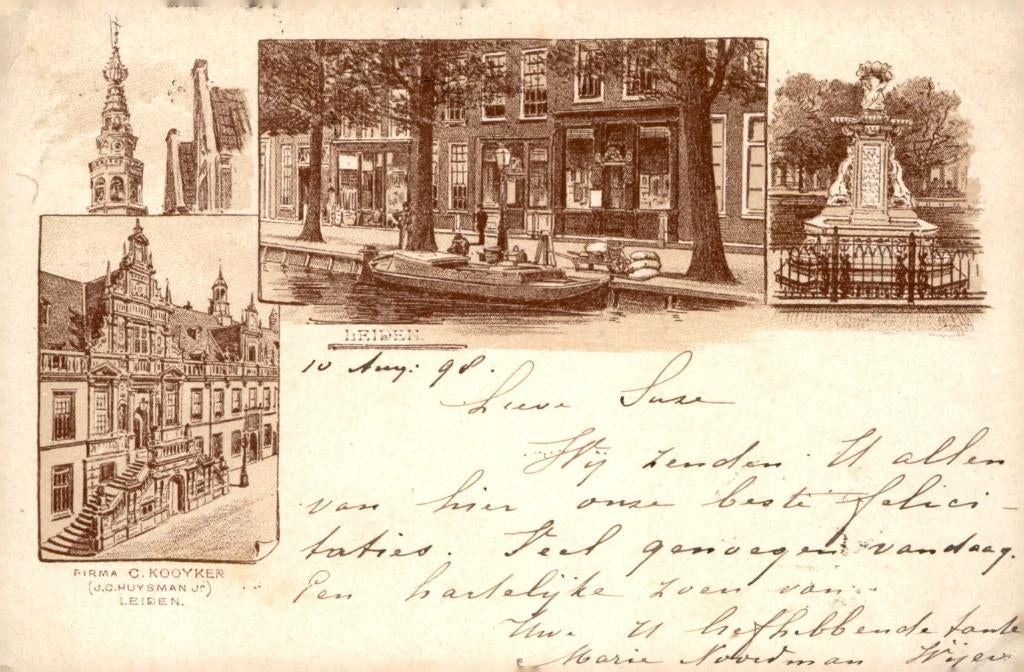 LEIDEN.
10 Aug: 98.
Lieve Suze
Wij zenden U allen
van hier onze beste felici-
taties. Veel genoegen vandaag.
Een hartelijke zoen van
Uwe U liefhebbende tante
Marie Noordman
FIRMA C. KOOYKER
(J.C. HUYSMAN Jr)
LEIDEN.